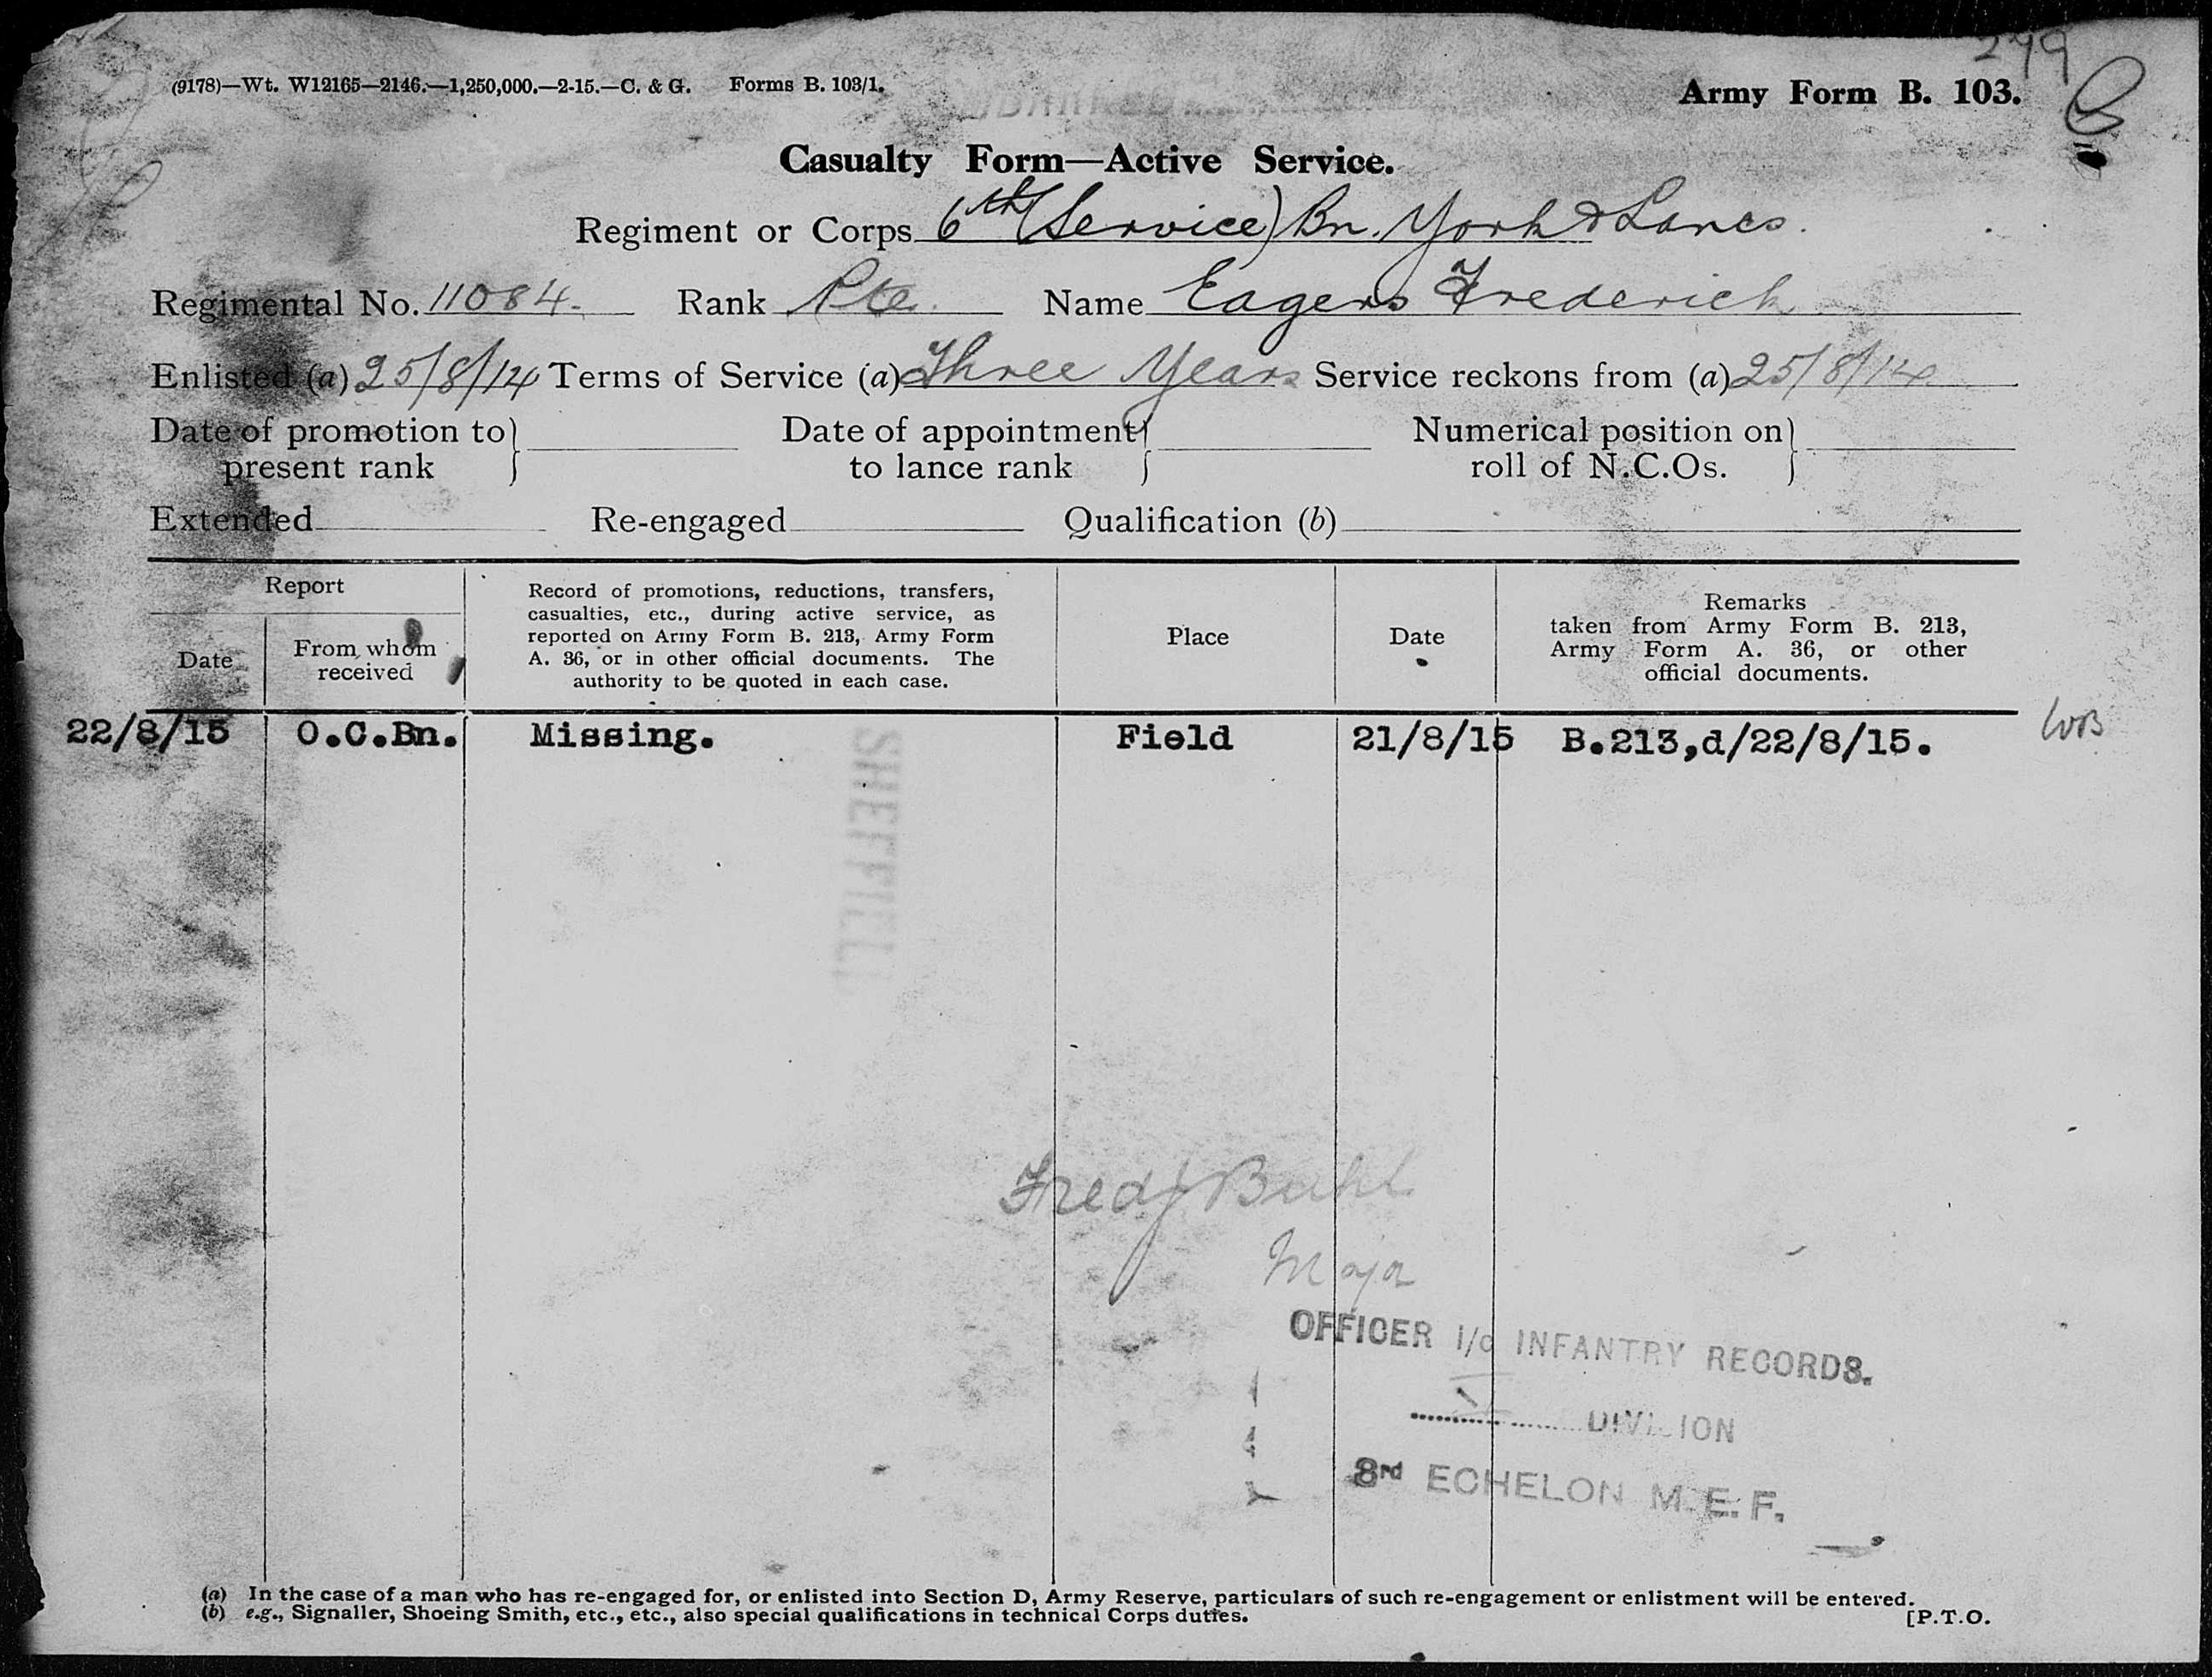 279
(9178)—Wt. W12165—2146.—1,250,000.—2-15.—C. & G. Forms B. 103/1.
Army Form B. 103.
Casualty Form—Active Service.
Regiment or Corps 6th (Service) Bn. York & Lancs.
Regimental No. 11084. Rank Pte. Name Eagers Frederick
Enlisted (a) 25/8/14 Terms of Service (a) Three Years Service reckons from (a) 25/8/14
Date of promotion to present rank
Date of appointment to lance rank
Numerical position on roll of N.C.Os.
Extended Re-engaged Qualification (b)
Report
Date
From whom received
Record of promotions, reductions, transfers,
casualties, etc., during active service, as
reported on Army Form B. 213, Army Form
A. 36, or in other official documents. The
authority to be quoted in each case.
Place
Date
Remarks
taken from Army Form B. 213,
Army Form A. 36, or other
official documents.
22/8/15 O.C.Bn. Missing. Field 21/8/15 B.213,d/22/8/15.
SHEFFIELD
Major
OFFICER i/c INFANTRY RECORDS.
DIVISION
3rd ECHELON M.E.F.
(a) In the case of a man who has re-engaged for, or enlisted into Section D, Army Reserve, particulars of such re-engagement or enlistment will be entered.
(b) e.g., Signaller, Shoeing Smith, etc., etc., also special qualifications in technical Corps duties.
[P.T.O.